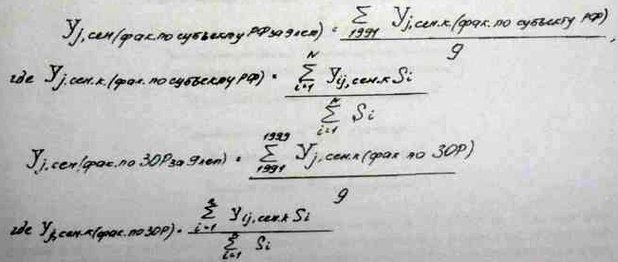 Уj,сем(фак.по субъекту РФ за 9 лет) = Σ 1991 Уj,сем.к(фак.по субъекту РФ) / 9,
где Уj.сем.к(фак.по субъекту РФ) = Σ i=1 N Уij,сем.к Si / Σ i=1 N Si
Уj,сем(фак.по ЗОР за 9 лет) = Σ 1991 1999 Уj,сем.к(фак по ЗОР) / 9
где Уj,сем.к(фак.по ЗОР) = Σ i=1 Уij,сем.к Si / Σ i=1 Si